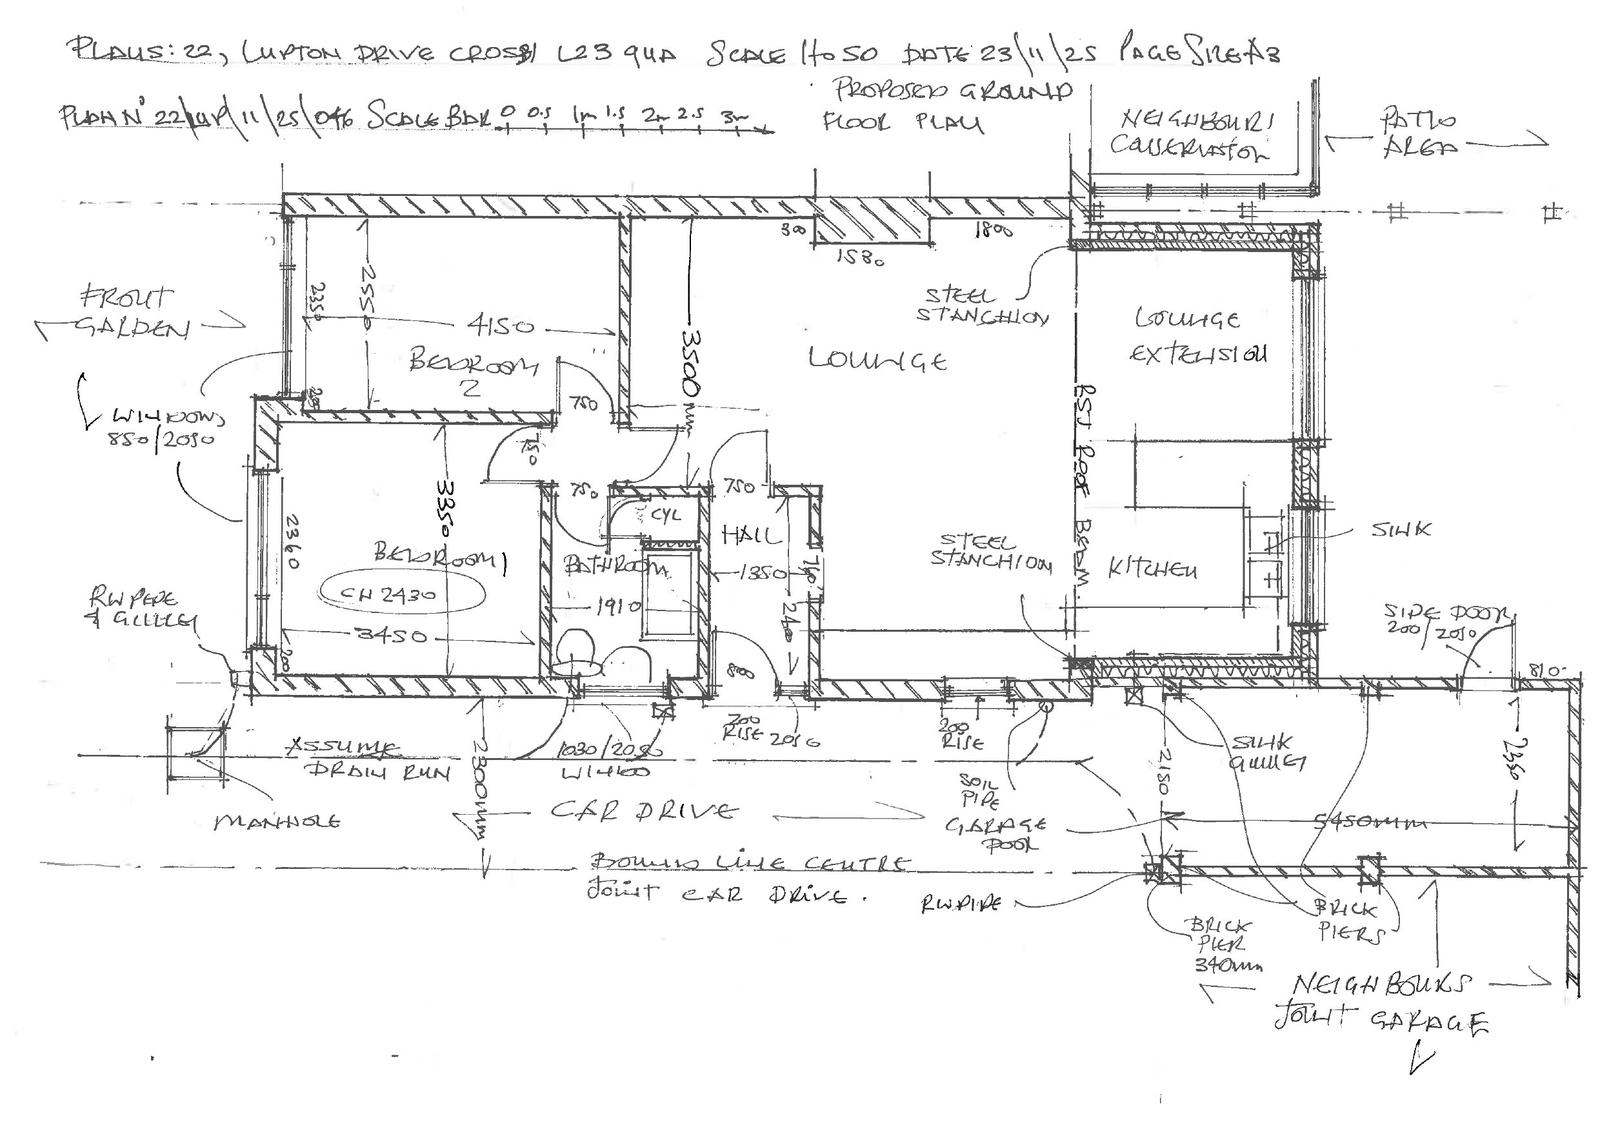 PLANS: 22, LUPTON DRIVE CROSBY L23 9UA SCALE 1 to 50 DATE 23/11/25 PAGE SIZE A3
PROPOSED GROUND
FLOOR PLAN
PLAN Nº 22/LUP/11/25/046 SCALE BAR 0 0.5 1m 1.5 2m 2.5 3m
NEIGHBOURS
CONSERVATORY
PATIO
AREA
300
1530
1800
FRONT
GARDEN
2350
2550
4150
BEDROOM
2
200
3500mm
LOUNGE
STEEL
STANCHION
LOUNGE
EXTENSION
RSJ ROOF BEAM
WINDOWS
850/2050
750
750
750
750
CYL
HALL
1350
740
2400
2360
3350
BEDROOM 1
CH 2430
3450
200
BATHROOM
1910
STEEL
STANCHION
KITCHEN
SINK
RW PIPE
& GULLEY
SIDE DOOR
200/2050
810
200
RISE 2050
200
RISE
ASSUME
DRAIN RUN
2300mm
1030/2050
WINDOW
MANHOLE
CAR DRIVE
SOIL
PIPE
GARAGE
DOOR
SINK
GULLEY
2180
2350
5450mm
BOUND LINE CENTRE
JOINT CAR DRIVE.
RW PIPE
BRICK
PIER
340mm
BRICK
PIERS
NEIGHBOURS
JOINT GARAGE